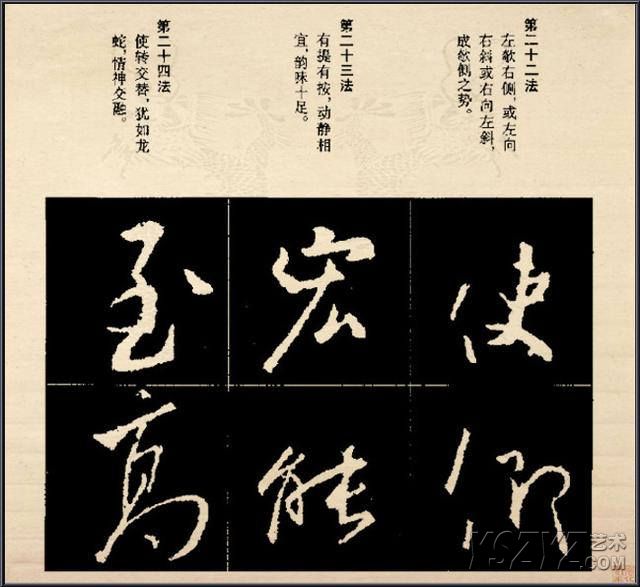 第二十二法
左欹右侧，或左向
右斜或右向左斜，
成欹侧之势。
第二十三法
有提有按，动静相
宜，韵味十足。
第二十四法
使转交替，犹如龙
蛇，情神交融。
使
宏
能
至
高
YSZYZ艺术